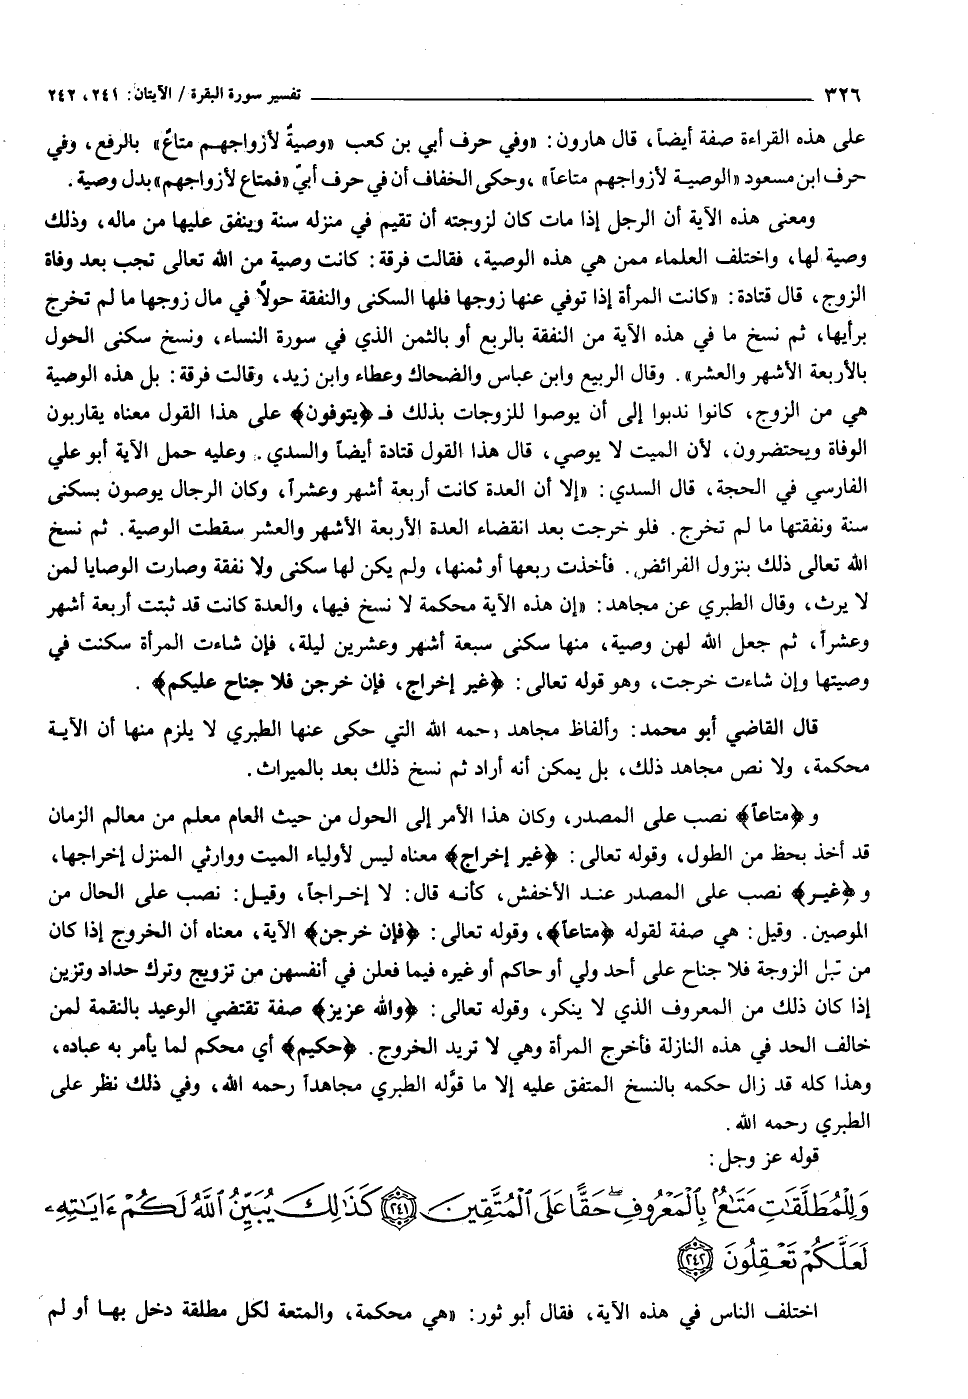 ٣٢٦ ــــــــــ تفسير سورة البقرة / الآيتان: ٢٤١، ٢٤٢
على هذه القراءة صفة أيضاً، قال هارون: «وفي حرف أبي بن كعب «وصيةٌ لأزواجهم متاعٌ» بالرفع، وفي
حرف ابن مسعود «الوصية لأزواجهم متاعاً»، وحكى الخفاف أن في حرف أبيّ «فمتاع لأزواجهم» بدل وصية.
ومعنى هذه الآية أن الرجل إذا مات كان لزوجته أن تقيم في منزله سنة وينفق عليها من ماله، وذلك
وصية لها، واختلف العلماء ممن هي هذه الوصية، فقالت فرقة: كانت وصية من الله تعالى تجب بعد وفاة
الزوج، قال قتادة: «كانت المرأة إذا توفي عنها زوجها فلها السكنى والنفقة حولاً في مال زوجها ما لم تخرج
برأيها، ثم نسخ ما في هذه الآية من النفقة بالربع أو بالثمن الذي في سورة النساء، ونسخ سكنى الحول
بالأربعة الأشهر والعشر». وقال الربيع وابن عباس والضحاك وعطاء وابن زيد، وقالت فرقة: بل هذه الوصية
هي من الزوج، كانوا ندبوا إلى أن يوصوا للزوجات بذلك فـ ﴿يتوفون﴾ على هذا القول معناه يقاربون
الوفاة ويحتضرون، لأن الميت لا يوصي، قال هذا القول قتادة أيضاً والسدي. وعليه حمل الآية أبو علي
الفارسي في الحجة، قال السدي: «إلا أن العدة كانت أربعة أشهر وعشراً، وكان الرجال يوصون بسكنى
سنة ونفقتها ما لم تخرج. فلو خرجت بعد انقضاء العدة الأربعة الأشهر والعشر سقطت الوصية. ثم نسخ
الله تعالى ذلك بنزول الفرائض. فأخذت ربعها أو ثمنها، ولم يكن لها سكنى ولا نفقة وصارت الوصايا لمن
لا يرث، وقال الطبري عن مجاهد: «إن هذه الآية محكمة لا نسخ فيها، والعدة كانت قد ثبتت أربعة أشهر
وعشراً، ثم جعل الله لهن وصية، منها سكنى سبعة أشهر وعشرين ليلة، فإن شاءت المرأة سكنت في
وصيتها وإن شاءت خرجت، وهو قوله تعالى: ﴿غير إخراج، فإن خرجن فلا جناح عليكم﴾ .
قال القاضي أبو محمد: وألفاظ مجاهد رحمه الله التي حكى عنها الطبري لا يلزم منها أن الآية
محكمة، ولا نص مجاهد ذلك، بل يمكن أنه أراد ثم نسخ ذلك بعد بالميراث.
و ﴿متاعاً﴾ نصب على المصدر، وكان هذا الأمر إلى الحول من حيث العام معلم من معالم الزمان
قد أخذ بحظ من الطول، وقوله تعالى: ﴿غير إخراج﴾ معناه ليس لأولياء الميت ووارثي المنزل إخراجها،
و ﴿غير﴾ نصب على المصدر عند الأخفش، كأنه قال: لا إخراجاً، وقيل: نصب على الحال من
الموصين. وقيل: هي صفة لقوله ﴿متاعاً﴾، وقوله تعالى: ﴿فإن خرجن﴾ الآية، معناه أن الخروج إذا كان
من قبل الزوجة فلا جناح على أحد ولي أو حاكم أو غيره فيما فعلن في أنفسهن من تزويج وترك حداد وتزين
إذا كان ذلك من المعروف الذي لا ينكر، وقوله تعالى: ﴿والله عزيز﴾ صفة تقتضي الوعيد بالنقمة لمن
خالف الحد في هذه النازلة فأخرج المرأة وهي لا تريد الخروج. ﴿حكيم﴾ أي محكم لما يأمر به عباده،
وهذا كله قد زال حكمه بالنسخ المتفق عليه إلا ما قوَّله الطبري مجاهداً رحمه الله، وفي ذلك نظر على
الطبري رحمه الله.
قوله عز وجل:
وَلِلْمُطَلَّقَٰتِ مَتَٰعٌۢ بِٱلْمَعْرُوفِۖ حَقًّا عَلَى ٱلْمُتَّقِينَ ﴿٢٤١﴾ كَذَٰلِكَ يُبَيِّنُ ٱللَّهُ لَكُمْ ءَايَٰتِهِۦ
لَعَلَّكُمْ تَعْقِلُونَ ﴿٢٤٢﴾
اختلف الناس في هذه الآية، فقال أبو ثور: «هي محكمة، والمتعة لكل مطلقة دخل بها أو لم